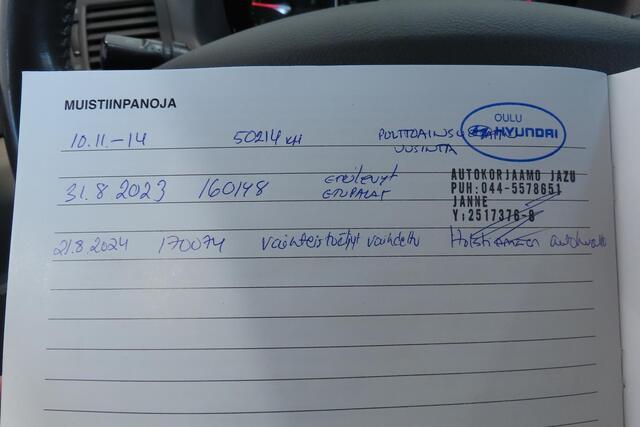 MUISTIINPANOJA
OULU
HYUNDAI
10.11.-14 50214 KM
UUSINTA
AUTOKORJAAMO JAZU
31.8.2023 160148 ETUPALAT
PUH:044-5578651
JANNE
Y:2517376-8
21.8.2024 170074 Vaihteistoöljyt vaihdettu